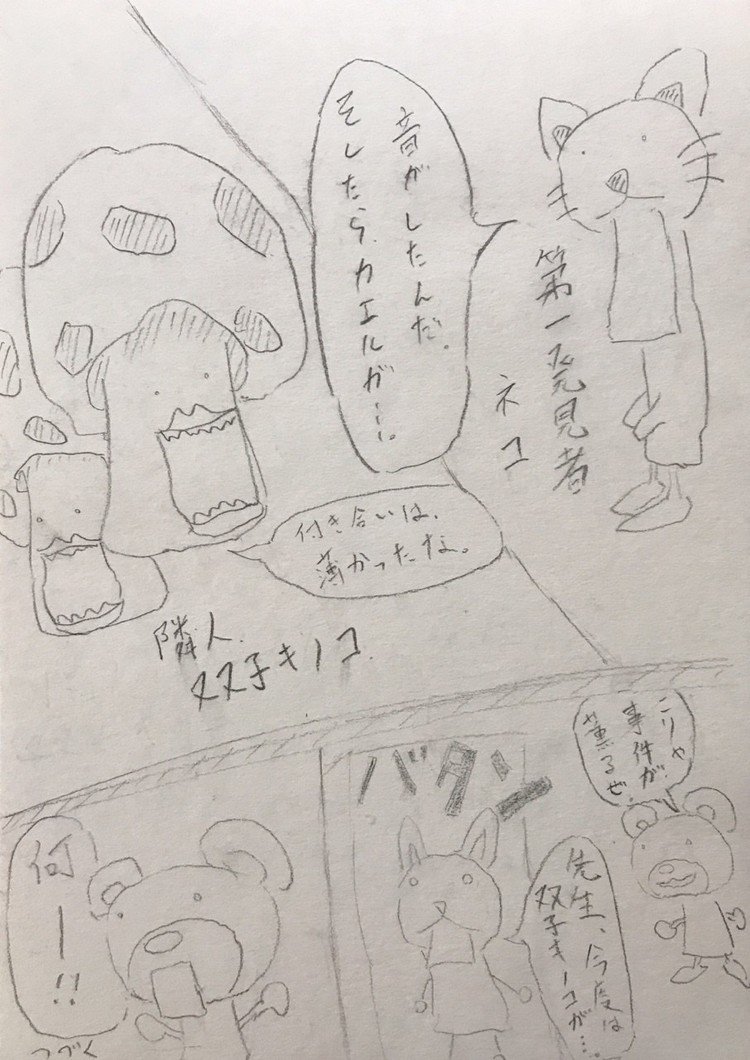 音がしたんだ。
そしたら、カエルが…。
第一発見者
ネコ
付き合いは、
薄かったな。
隣人
双子キノコ
こりゃ
事件が
薫るぜ。
バタン
先生、今度は
双子キノコが…。
何ー!!
つづく